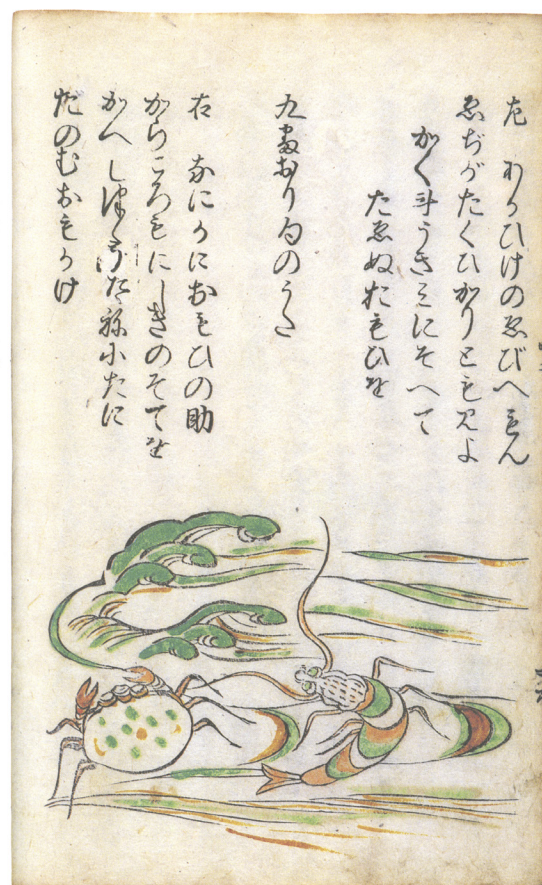 左　わかひけのゑびへもん
ゑぢがたくひかりともみよ
かく斗うきミにそへて
たゑぬおもひを
九番おり句のうた
右　なにかにおもひの助
からころもにしきのそてを
かへしつゝうたゝねにたに
だのむおもかけ